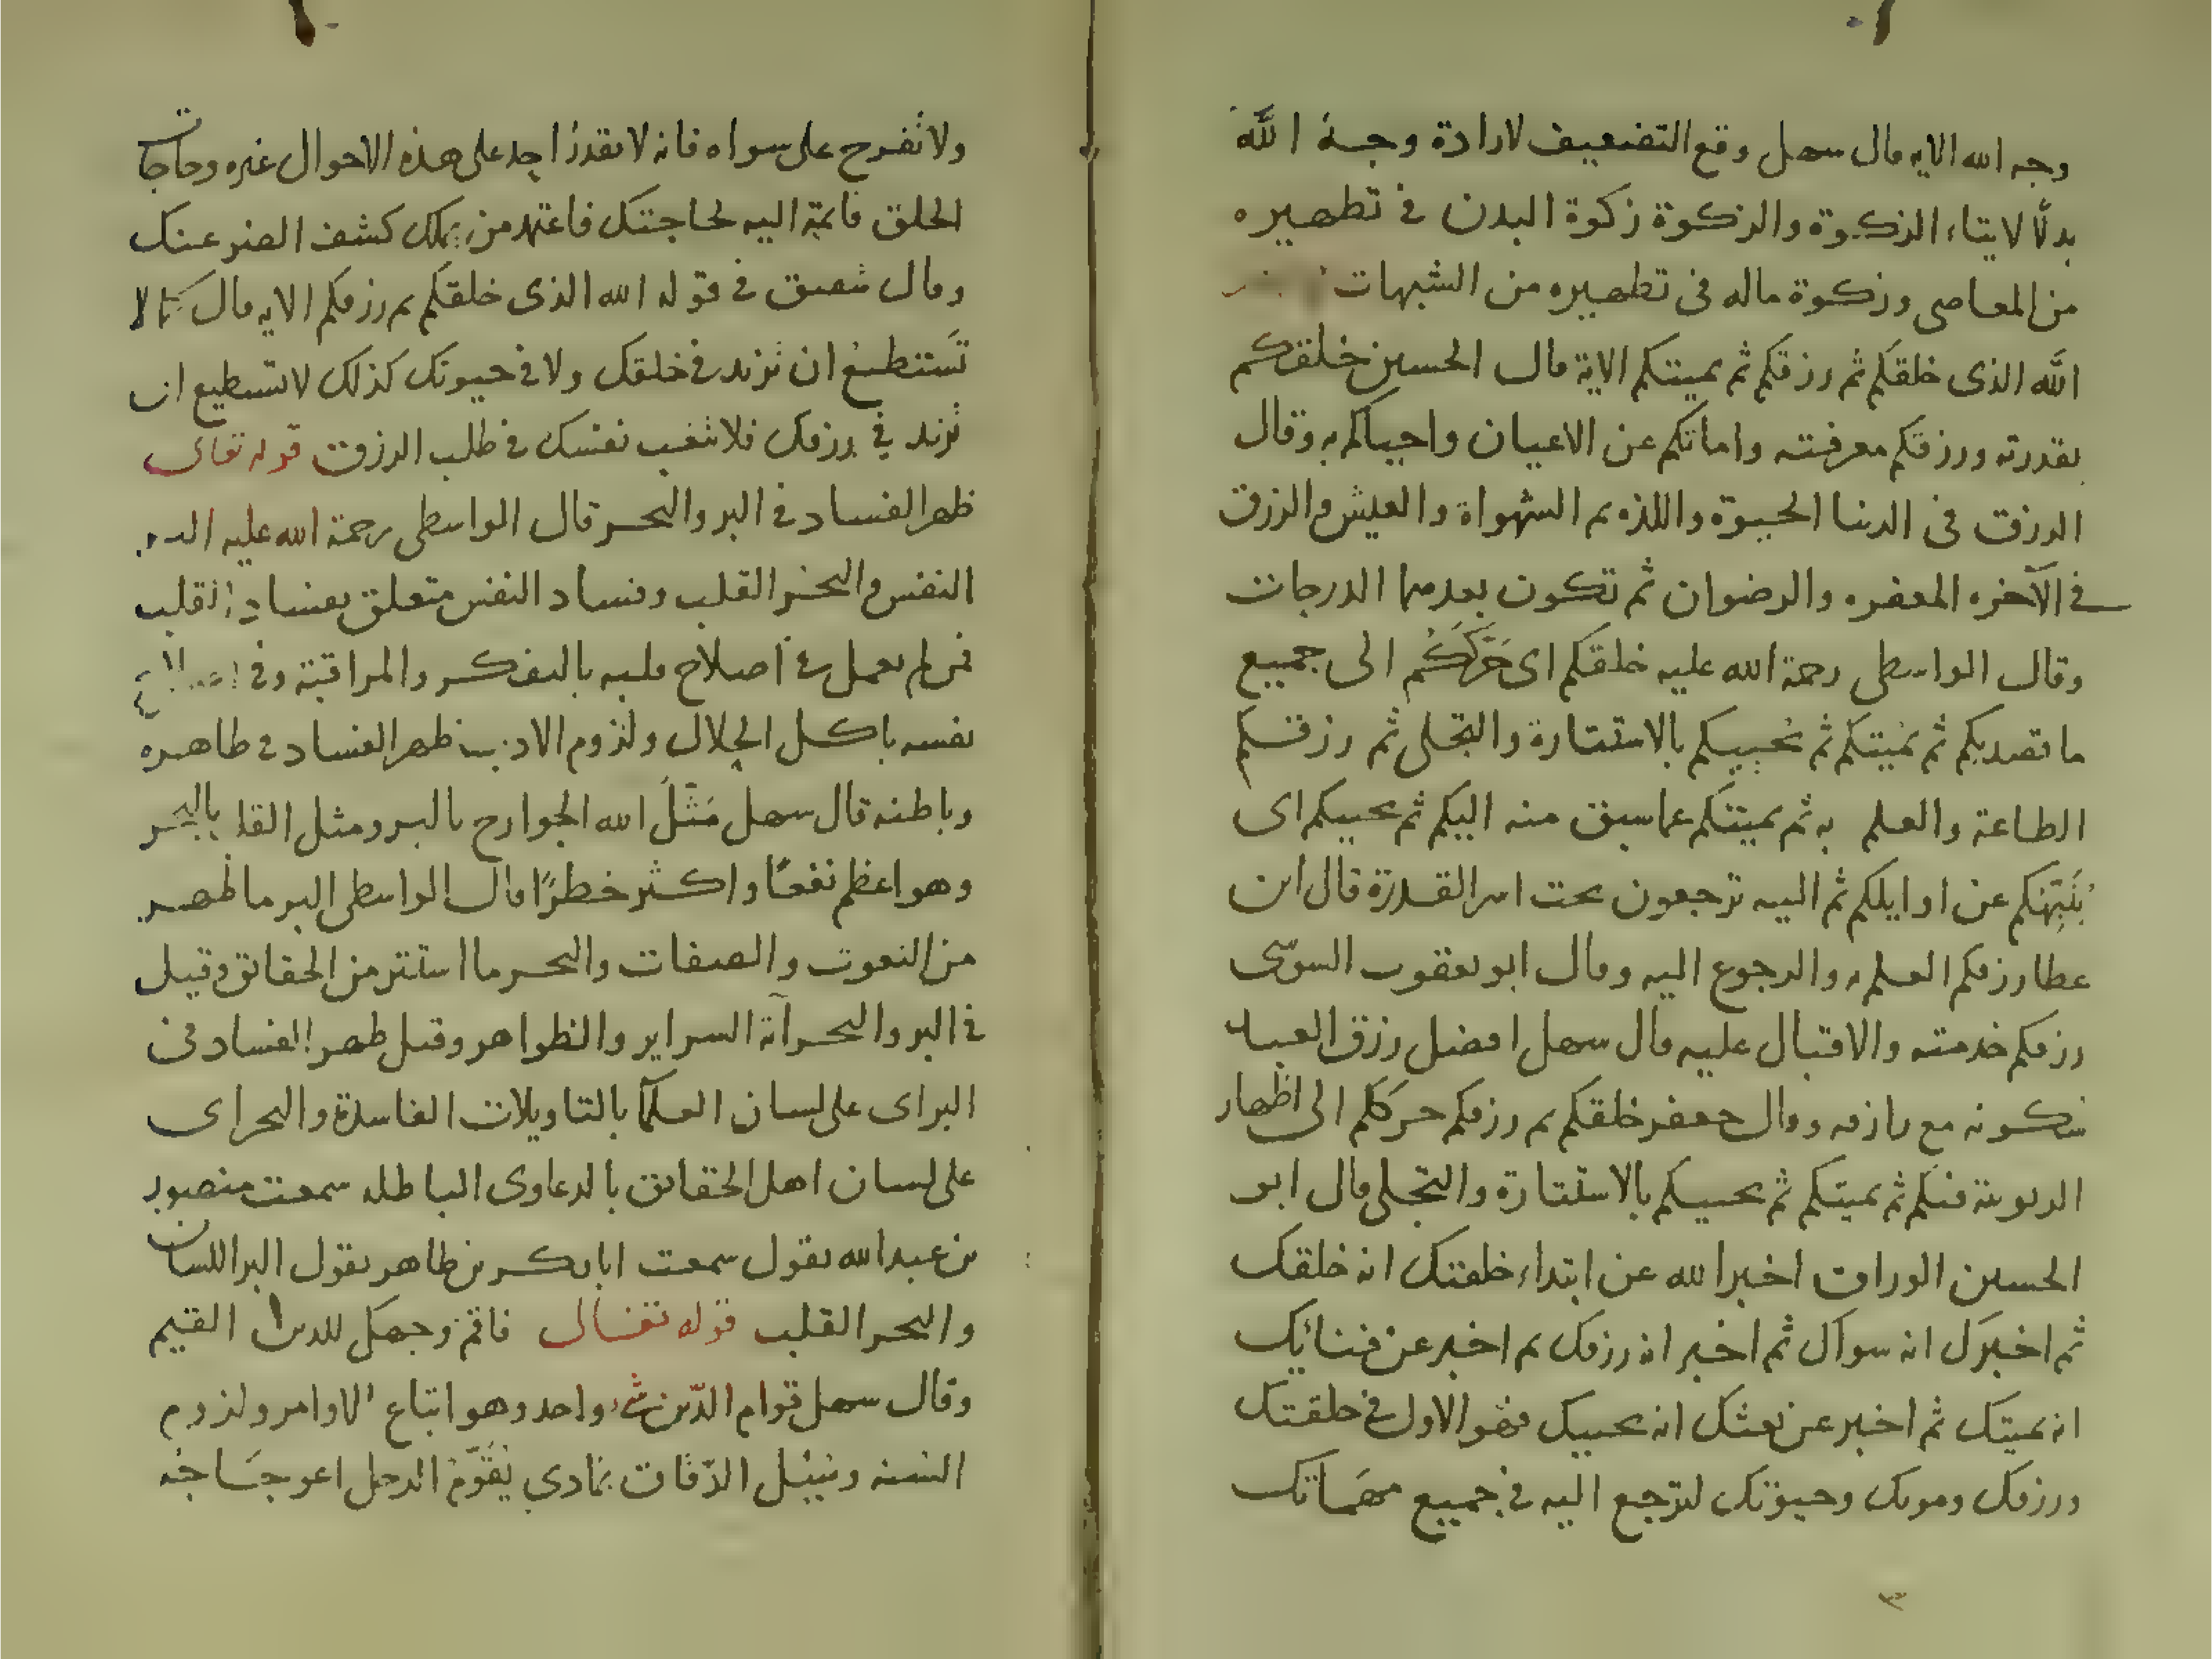 وجه الله الايه قال سهل وقع التضعيف لارادة وجه الله
بدلًا لايتاء الزكوة والزكوة زكوة البدن في تطهيره
من المعاصى وزكوة ماله فى تطهيره من الشبهات
الله الذى خلقكم ثم رزقكم ثم يميتكم الاية قال الحسين خلقكم
بقدرته ورزقكم معرفته واماتكم عن الاعيان واحياكم به وقال
الرزق فى الدنيا الحيوة واللذه ثم الشهواة والعيش والرزق
في الآخره المغفره والرضوان ثم تكون بعدهما الدرجات
وقال الواسطى رحمة الله عليه خلقكم اى حَرَّكَكُم الى جميع
ما تصديكم ثم يميتكم ثم يحييكم بالاستتارة والتجلى ثم رزقكم
الطاعة والعلم به ثم يميتكم عما سبق منه اليكم ثم يحييكم اى
يُنَبِّهكم عن اوايلكم ثم اليه ترجعون تحت اسر القدرة قال ابن
عطا رزقكم العلم به والرجوع اليه وقال ابو يعقوب السوسى
رزقكم خدمته والاقبال عليه قال سهل افضل رزق العبد
سكونه مع رازقه وقال جعفر خلقكم ثم رزقكم حركم الى اظهار
الربوبية فيكم ثم يميتكم ثم يحييكم بالاستتارة والتجلى قال ابو
الحسين الوراق اخبر الله عن ابتداء خلقتك انه خلقك
ثم اخبرك انه سواك ثم اخبر انه رزقك ثم اخبر عن فنائك
انه يميتك ثم اخبر عن بعثك انه يحييك فهو الاول في خلقتك
ورزقك وموتك وحيوتك لترجع اليه في جميع مهماتك
ولا تفرح على سواه فانه لا يقدر احد على هذه الاحوال غيره وحاجات
الخلق قايمة اليه لحاجتك فاعتمد من يملك كشف الضر عنك
وقال شقيق في قوله الله الذى خلقكم ثم رزقكم الايه قال كما لا
تستطيع ان تزيد في خلقك ولا في حيوتك كذلك لا تستطيع ان
تزيد في رزقك فلا تتعب نفسك في طلب الرزق قوله تعالى
ظهر الفساد في البر والبحر قال الواسطى رحمة الله عليه البر
النفس والبحر القلب وفساد النفس متعلق بفساد القلب
فمن لم يعمل في اصلاح قلبه بالتفكر والمراقبة وفي
نفسه باكل الحلال ولزوم الادب ظهر الفساد في ظاهره
وباطنه قال سهل مَثَّلَ الله الجوارح بالبر ومثل القلب بالبحر
وهو اعظم نفعًا واكثر خطرًا قال الواسطى البر ما ظهر
من النعوت والصفات والبحر ما استتر من الحقائق وقيل
في البر والبحر آنه السراير والظواهر وقيل ظهر الفساد فى
البر اى على لسان العلمآ بالتاويلات الفاسدة والبحر اى
على لسان اهل الحقائق بالدعاوى الباطله سمعت منصور
بن عبد الله يقول سمعت ابا بكر بن طاهر يقول البر اللسان
والبحر القلب قوله تعالى فاقم وجهك للدين القيم
وقال سهل قوام الدّين شيء واحد وهو اتباع الاوامر ولزوم
السنه يقوّم الرجل